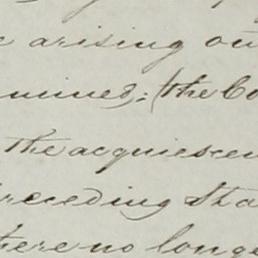 arising ou
mined; (the Co
the acquiescen
receding sta
here no longe